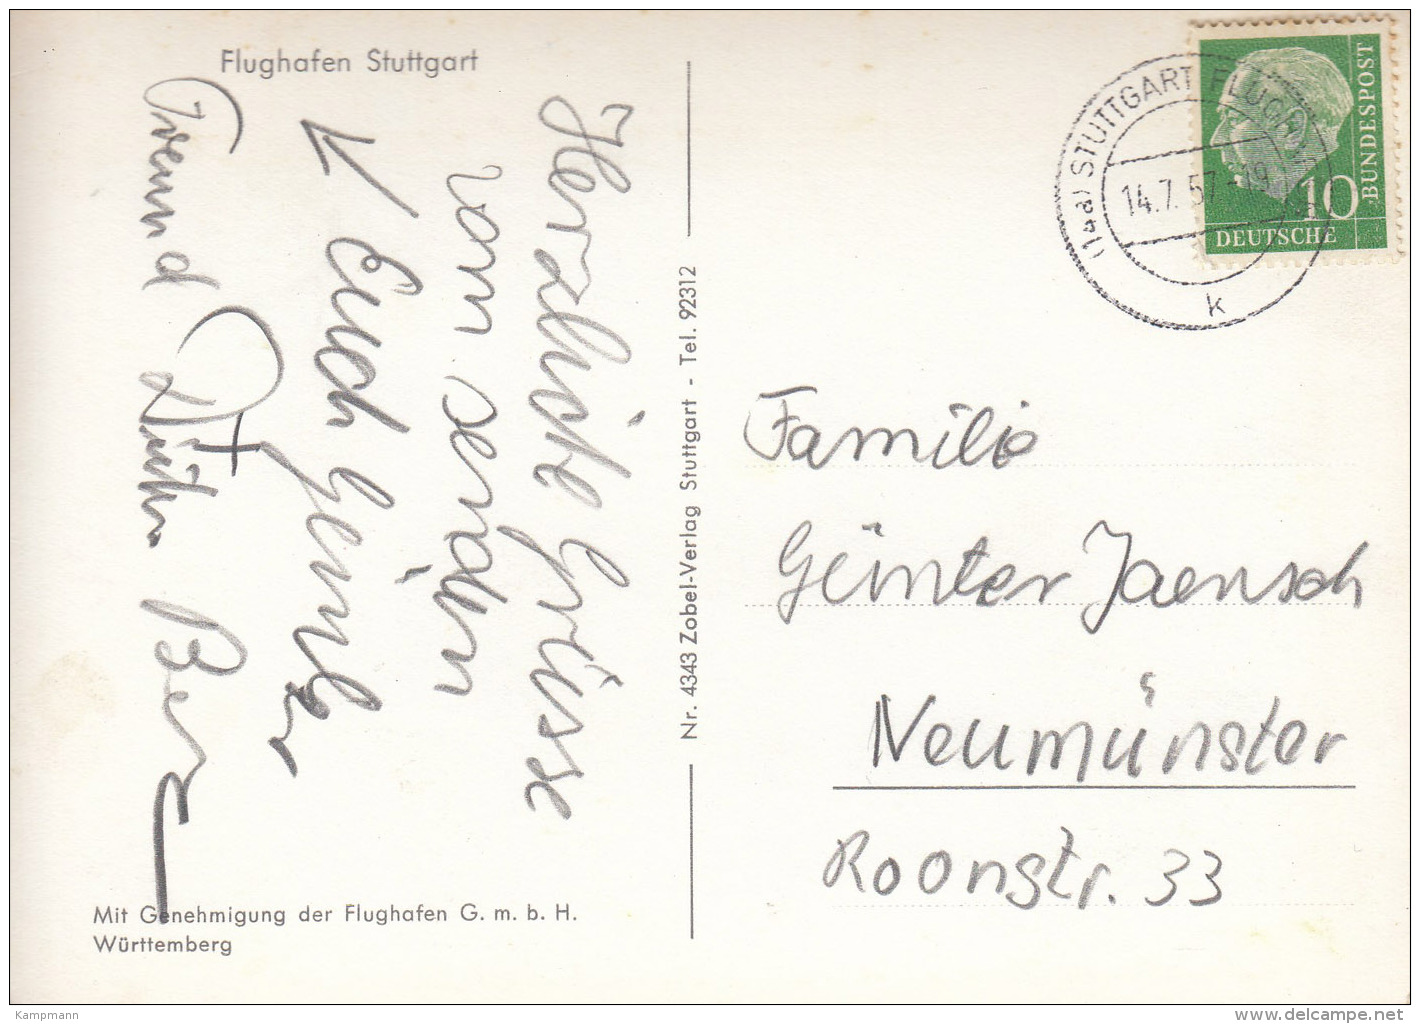 Flughafen Stuttgart
Herzliche Grüsse
von
Euch
(14a) STUTTGART FLUGH
14.7.57-19
k
10
BUNDESPOST
DEUTSCHE
Nr. 4343 Zobel-Verlag Stuttgart - Tel. 92312
Familie
Günter Jaensch
Neumünster
Roonstr. 33
Mit Genehmigung der Flughafen G. m. b. H.
Württemberg
Kampmann
www.delcampe.net